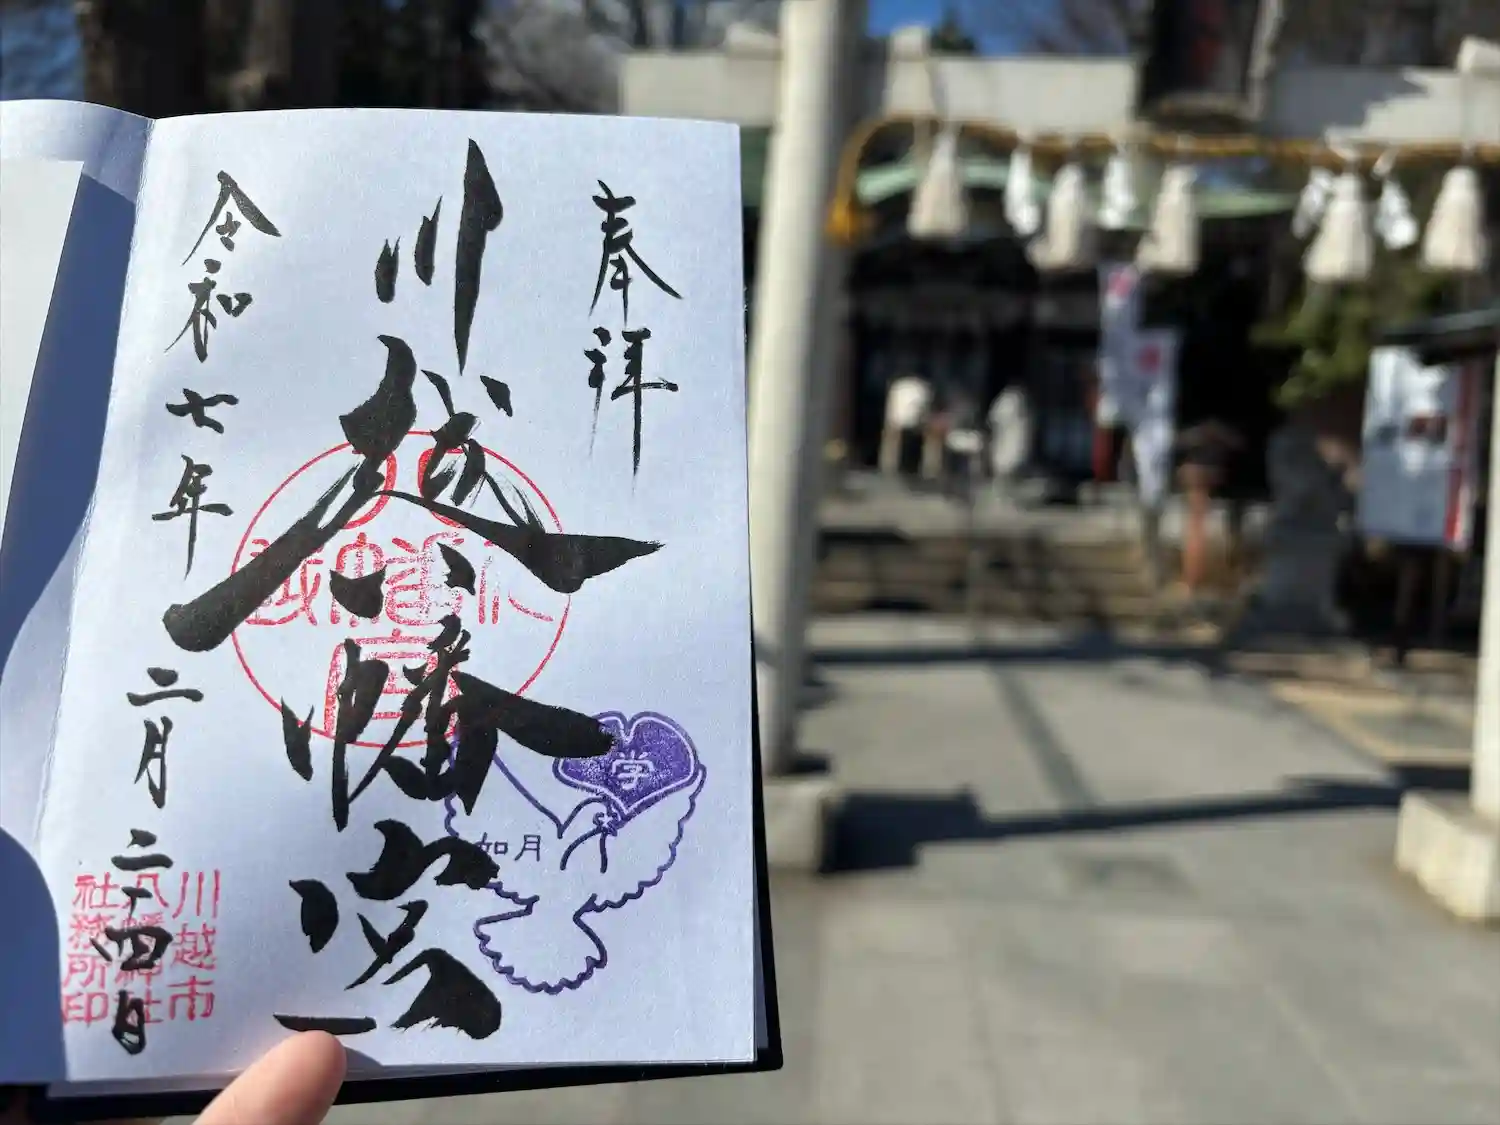 奉拝
川越八幡宮
令和七年二月二十四日
学
如月
川越市
八幡神社
社務所印